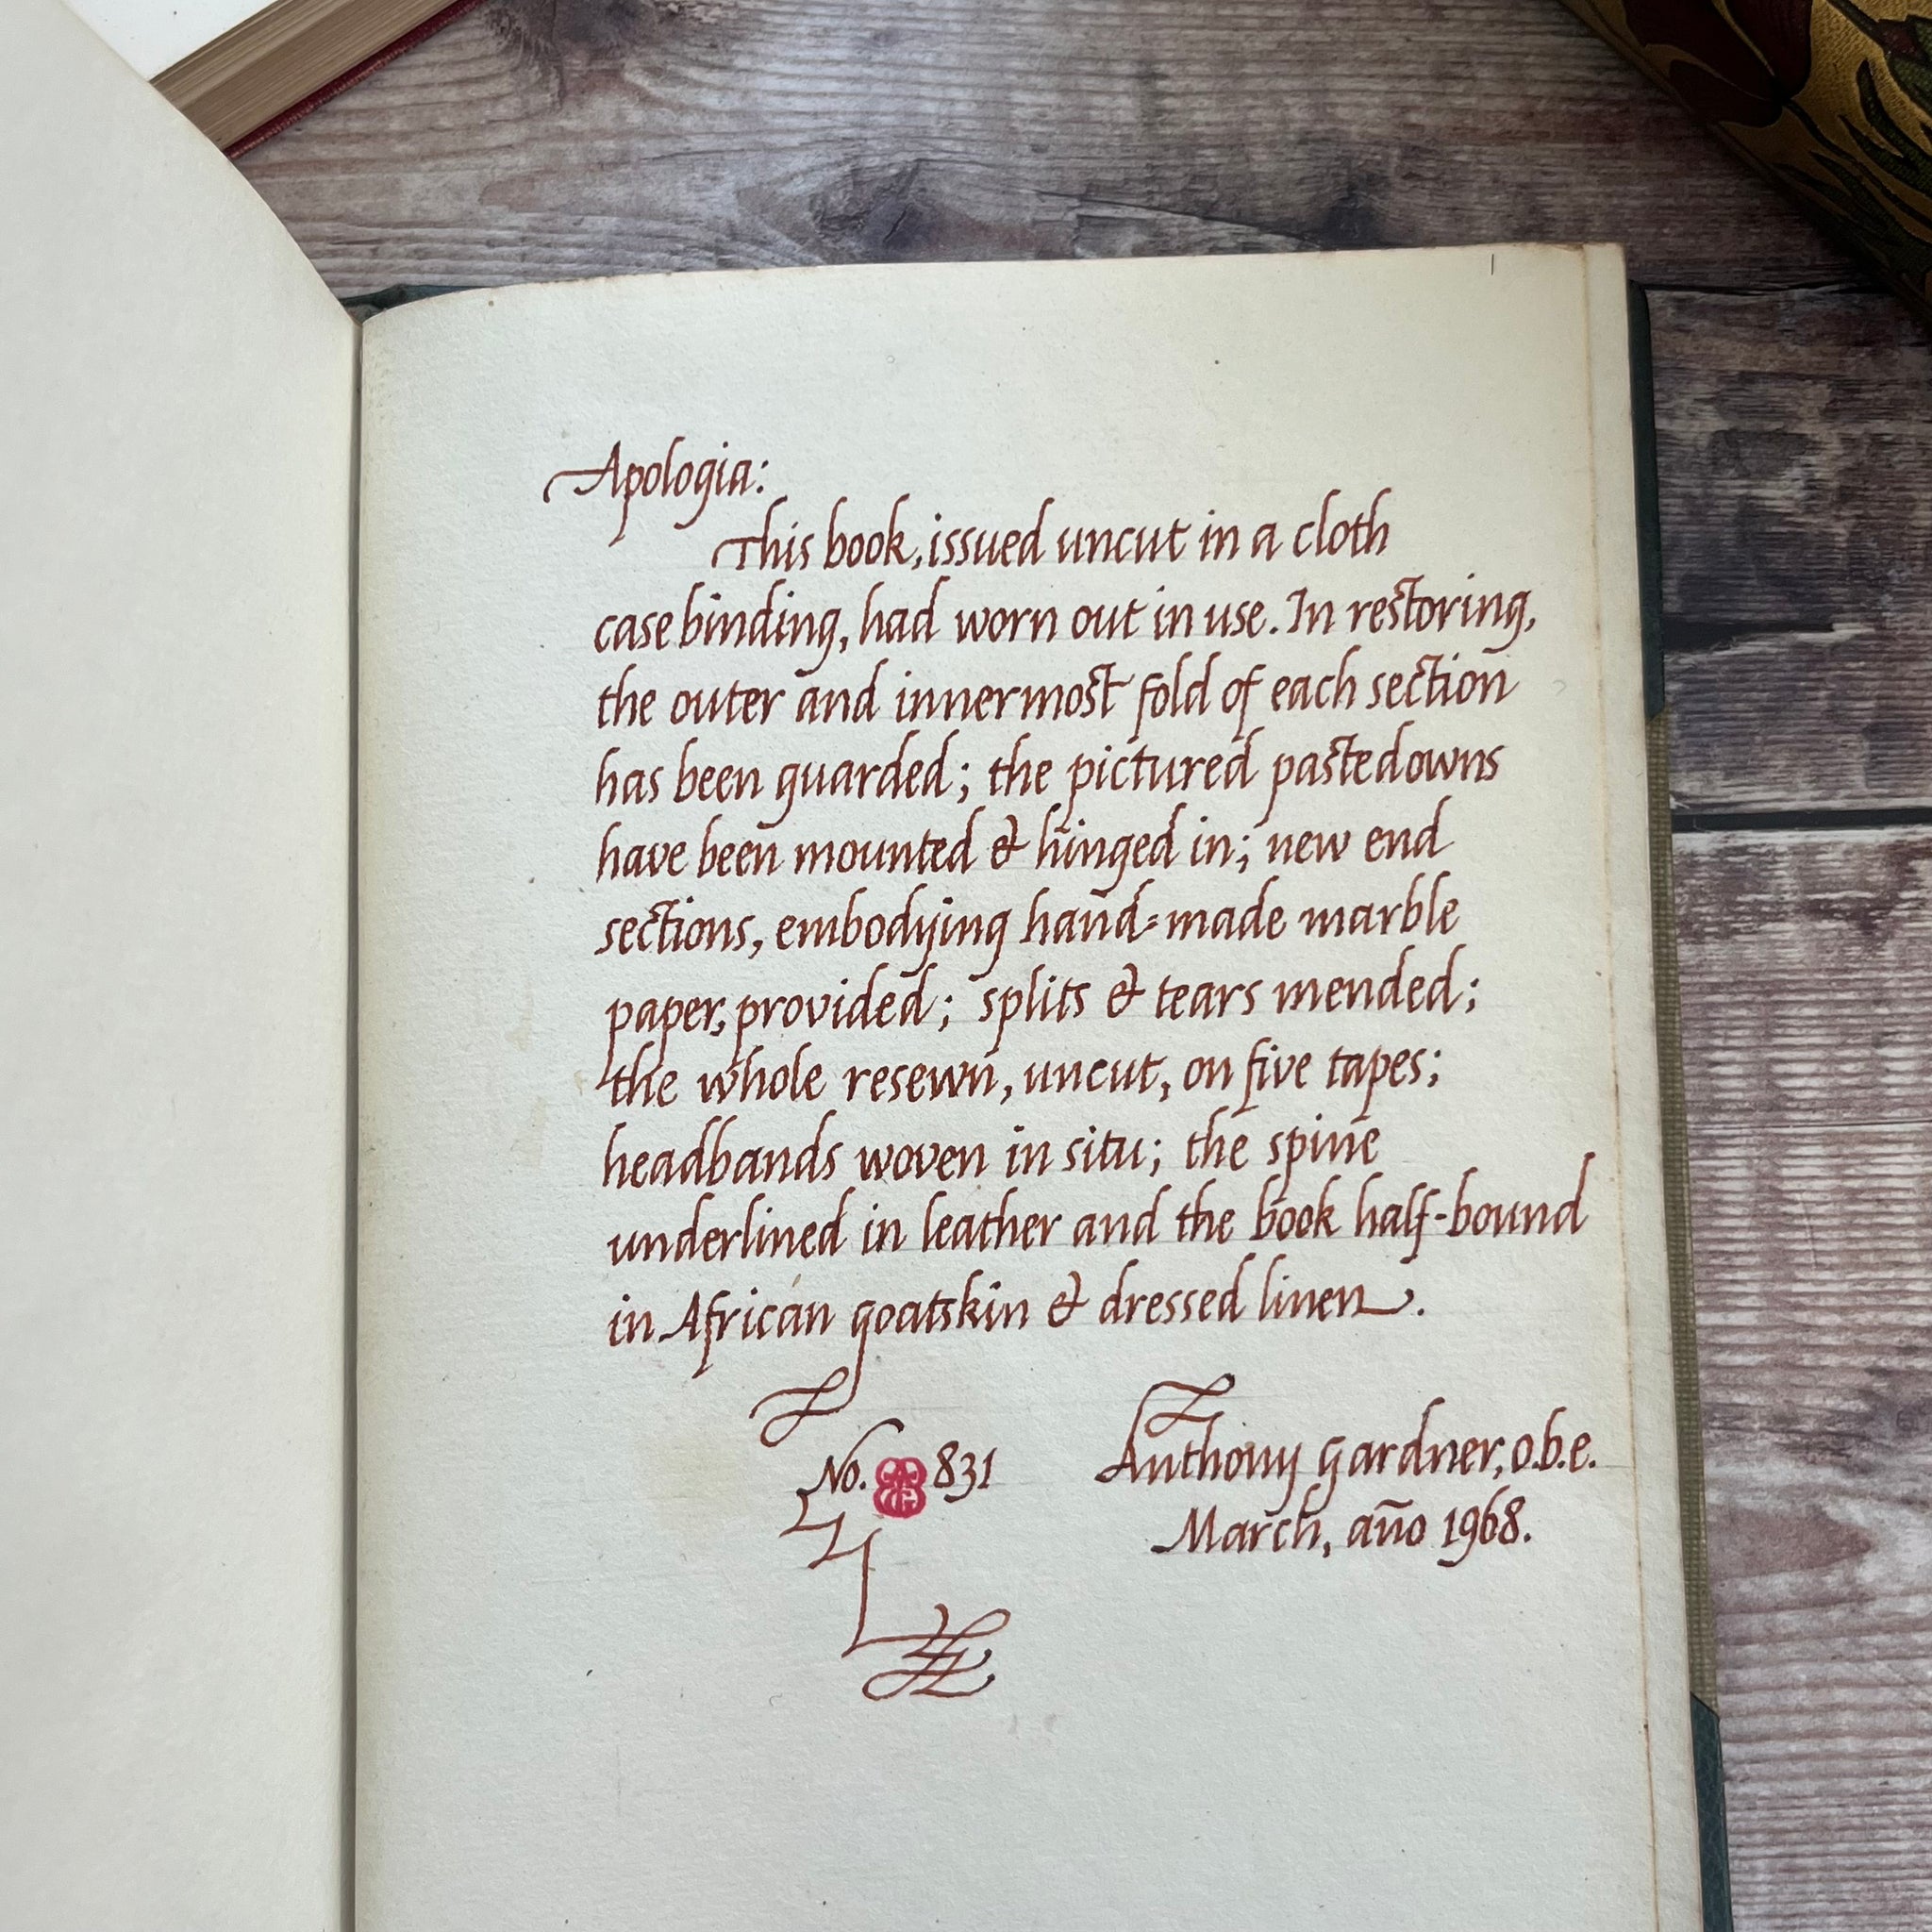 Apologia:
This book, issued uncut in a cloth
case binding, had worn out in use. In restoring,
the outer and innermost fold of each section
has been guarded; the pictured pastedowns
have been mounted & hinged in; new end
sections, embodying hand-made marble
paper, provided; splits & tears mended;
the whole resewn, uncut, on five tapes;
headbands woven in situ; the spine
underlined in leather and the book half-bound
in African goatskin & dressed linen.
No. 831
Anthony Gardner, o.b.e.
March, año 1968.